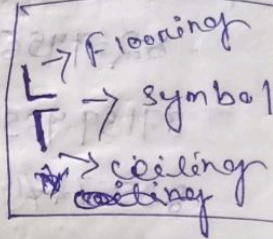 → Flooring
→ symbol
→ ceiling